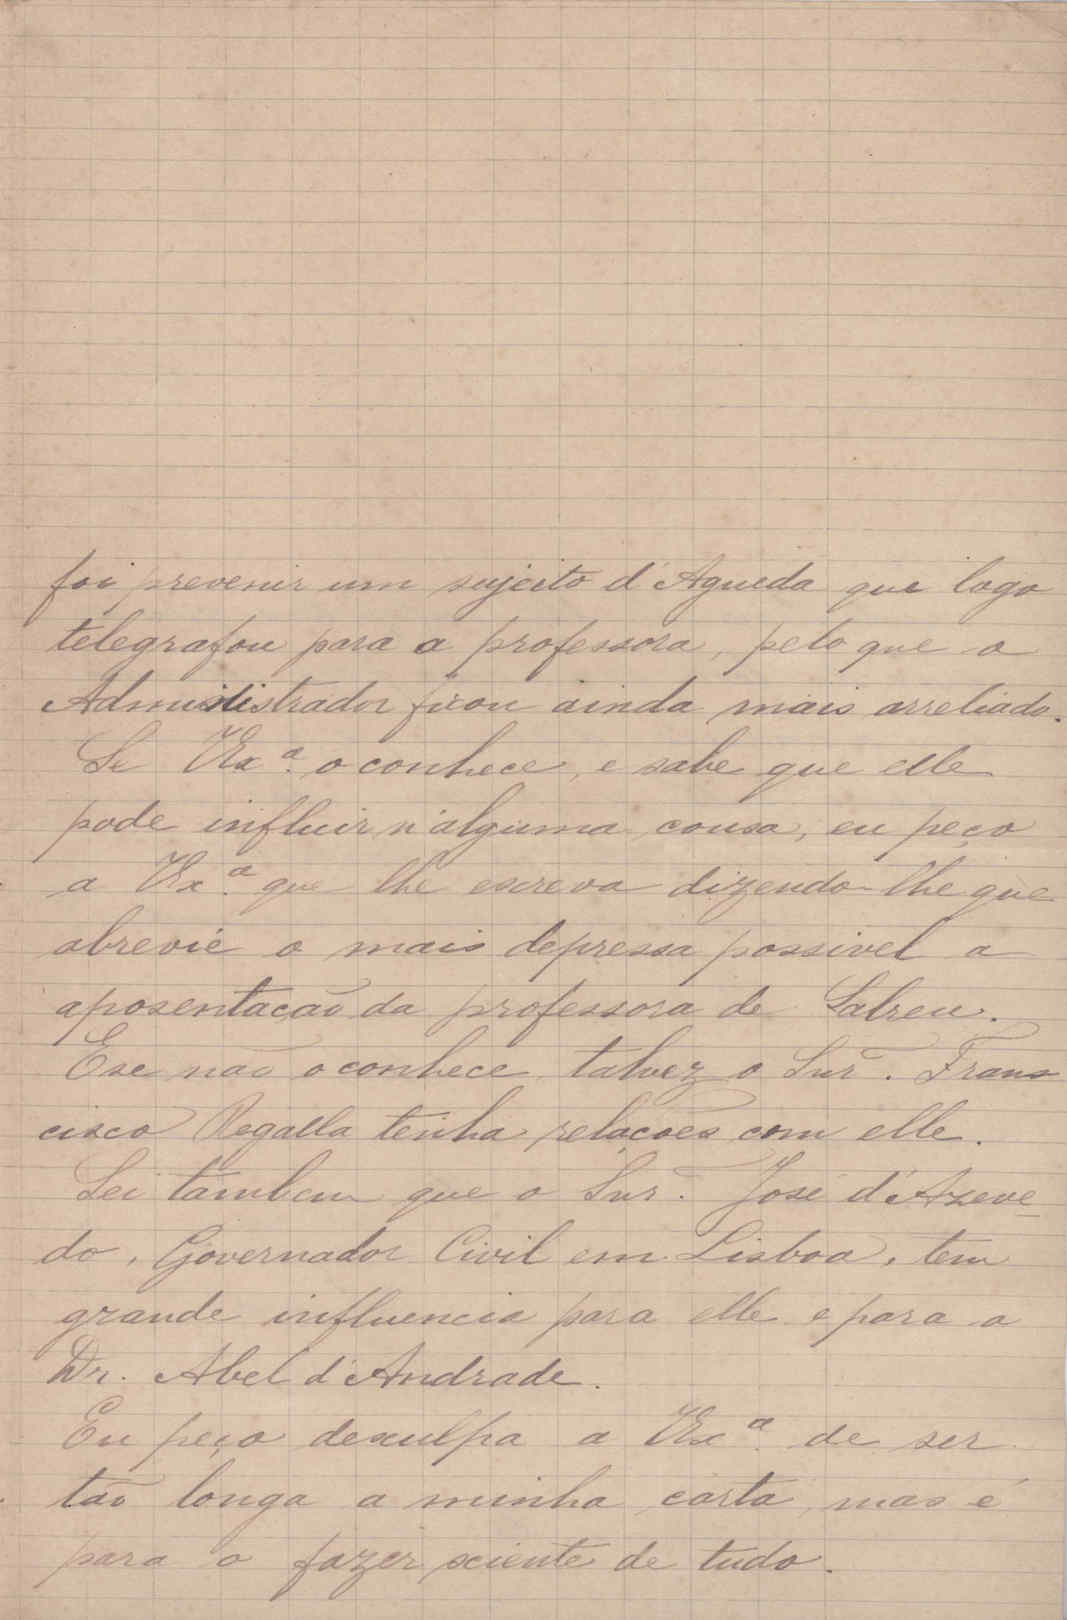 foi prevenir um sujeito d'Agueda que logo
telegrafou para a professora, pelo que o
Administrador ficou ainda mais arreliado.
Se VExª. o conhece, e sabe que elle
pode influir n'alguma cousa, eu peço
a VExª. que lhe escreva dizendo-lhe que
abrevie o mais depressa possivel a
aposentacão da professora de Salreu.
E se não o conhece talvez o Snr. Fran
cisco Regalla tenha relacões com elle.
Sei tambem que o Snr. José d'Azeve
do, Governador Civil em Lisboa, tem
grande influencia para elle e para o
Dr. Abel d'Andrade.
Eu peço desculpa a VExª. de ser
tão longa a minha carta, mas é
para o fazer sciente de tudo.